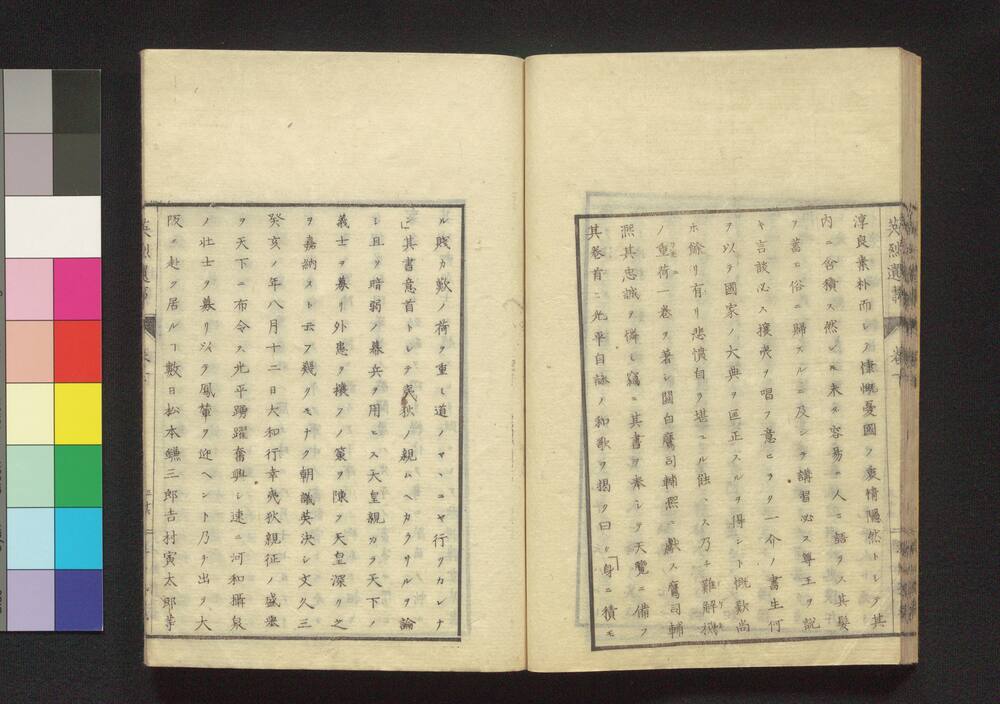 英烈遺事 巻下
淳良素朴而シテ慷慨憂國ノ衷情隱然トシテ其
内ニ含積ス然レ𪜈未タ容易ニ人ニ語ラス其髪
ヲ蓄ヒ俗ニ歸スルニ及シテ講習必ス尊王ヲ説
キ言談必ス攘夷ヲ唱フ意ヒラク一介ノ書生何
ヲ以テ國家ノ大典ヲ匡正スルヲ得ント慨歎尚
ホ餘リ有リ悲憤自ラ堪ユル能ハス乃チ難解機
ノ重荷一巻ヲ著シ關白鷹司輔熙ニ獻ス鷹司輔
熙其忠誠ヲ憐レ竊ニ其書ヲ奉シテ天覽ニ備フ
其巻首ニ光平自詠ノ和歌ヲ揭ク曰ク「身ニ積モ
ル賤カ歎ノ荷ヲ重ミ道ノマヽニヤ行クカレナ
ン」其書意首トシテ戎狄ノ親ムヘカラサルヲ論
シ且ツ暗弱ノ幕兵ヲ用ヒス天皇親カラ天下ノ
義士ヲ募リ外患ヲ攘フノ策ヲ陳ヲ天皇深ク之
ヲ嘉納スト云フ幾クモナク朝議英決シ文久三
癸亥ノ年八月十二日大和行幸夷狄親征ノ盛擧
ヲ天下ニ布令ス光平踴躍奮興シ速ニ河和攝泉
ノ壮士ヲ募リ以テ鳳輦ヲ迎ヘント乃チ出テ大
阪ニ赴ク居ルヿ數日松本鐮三郎吉村寅太郎等
英烈遺事